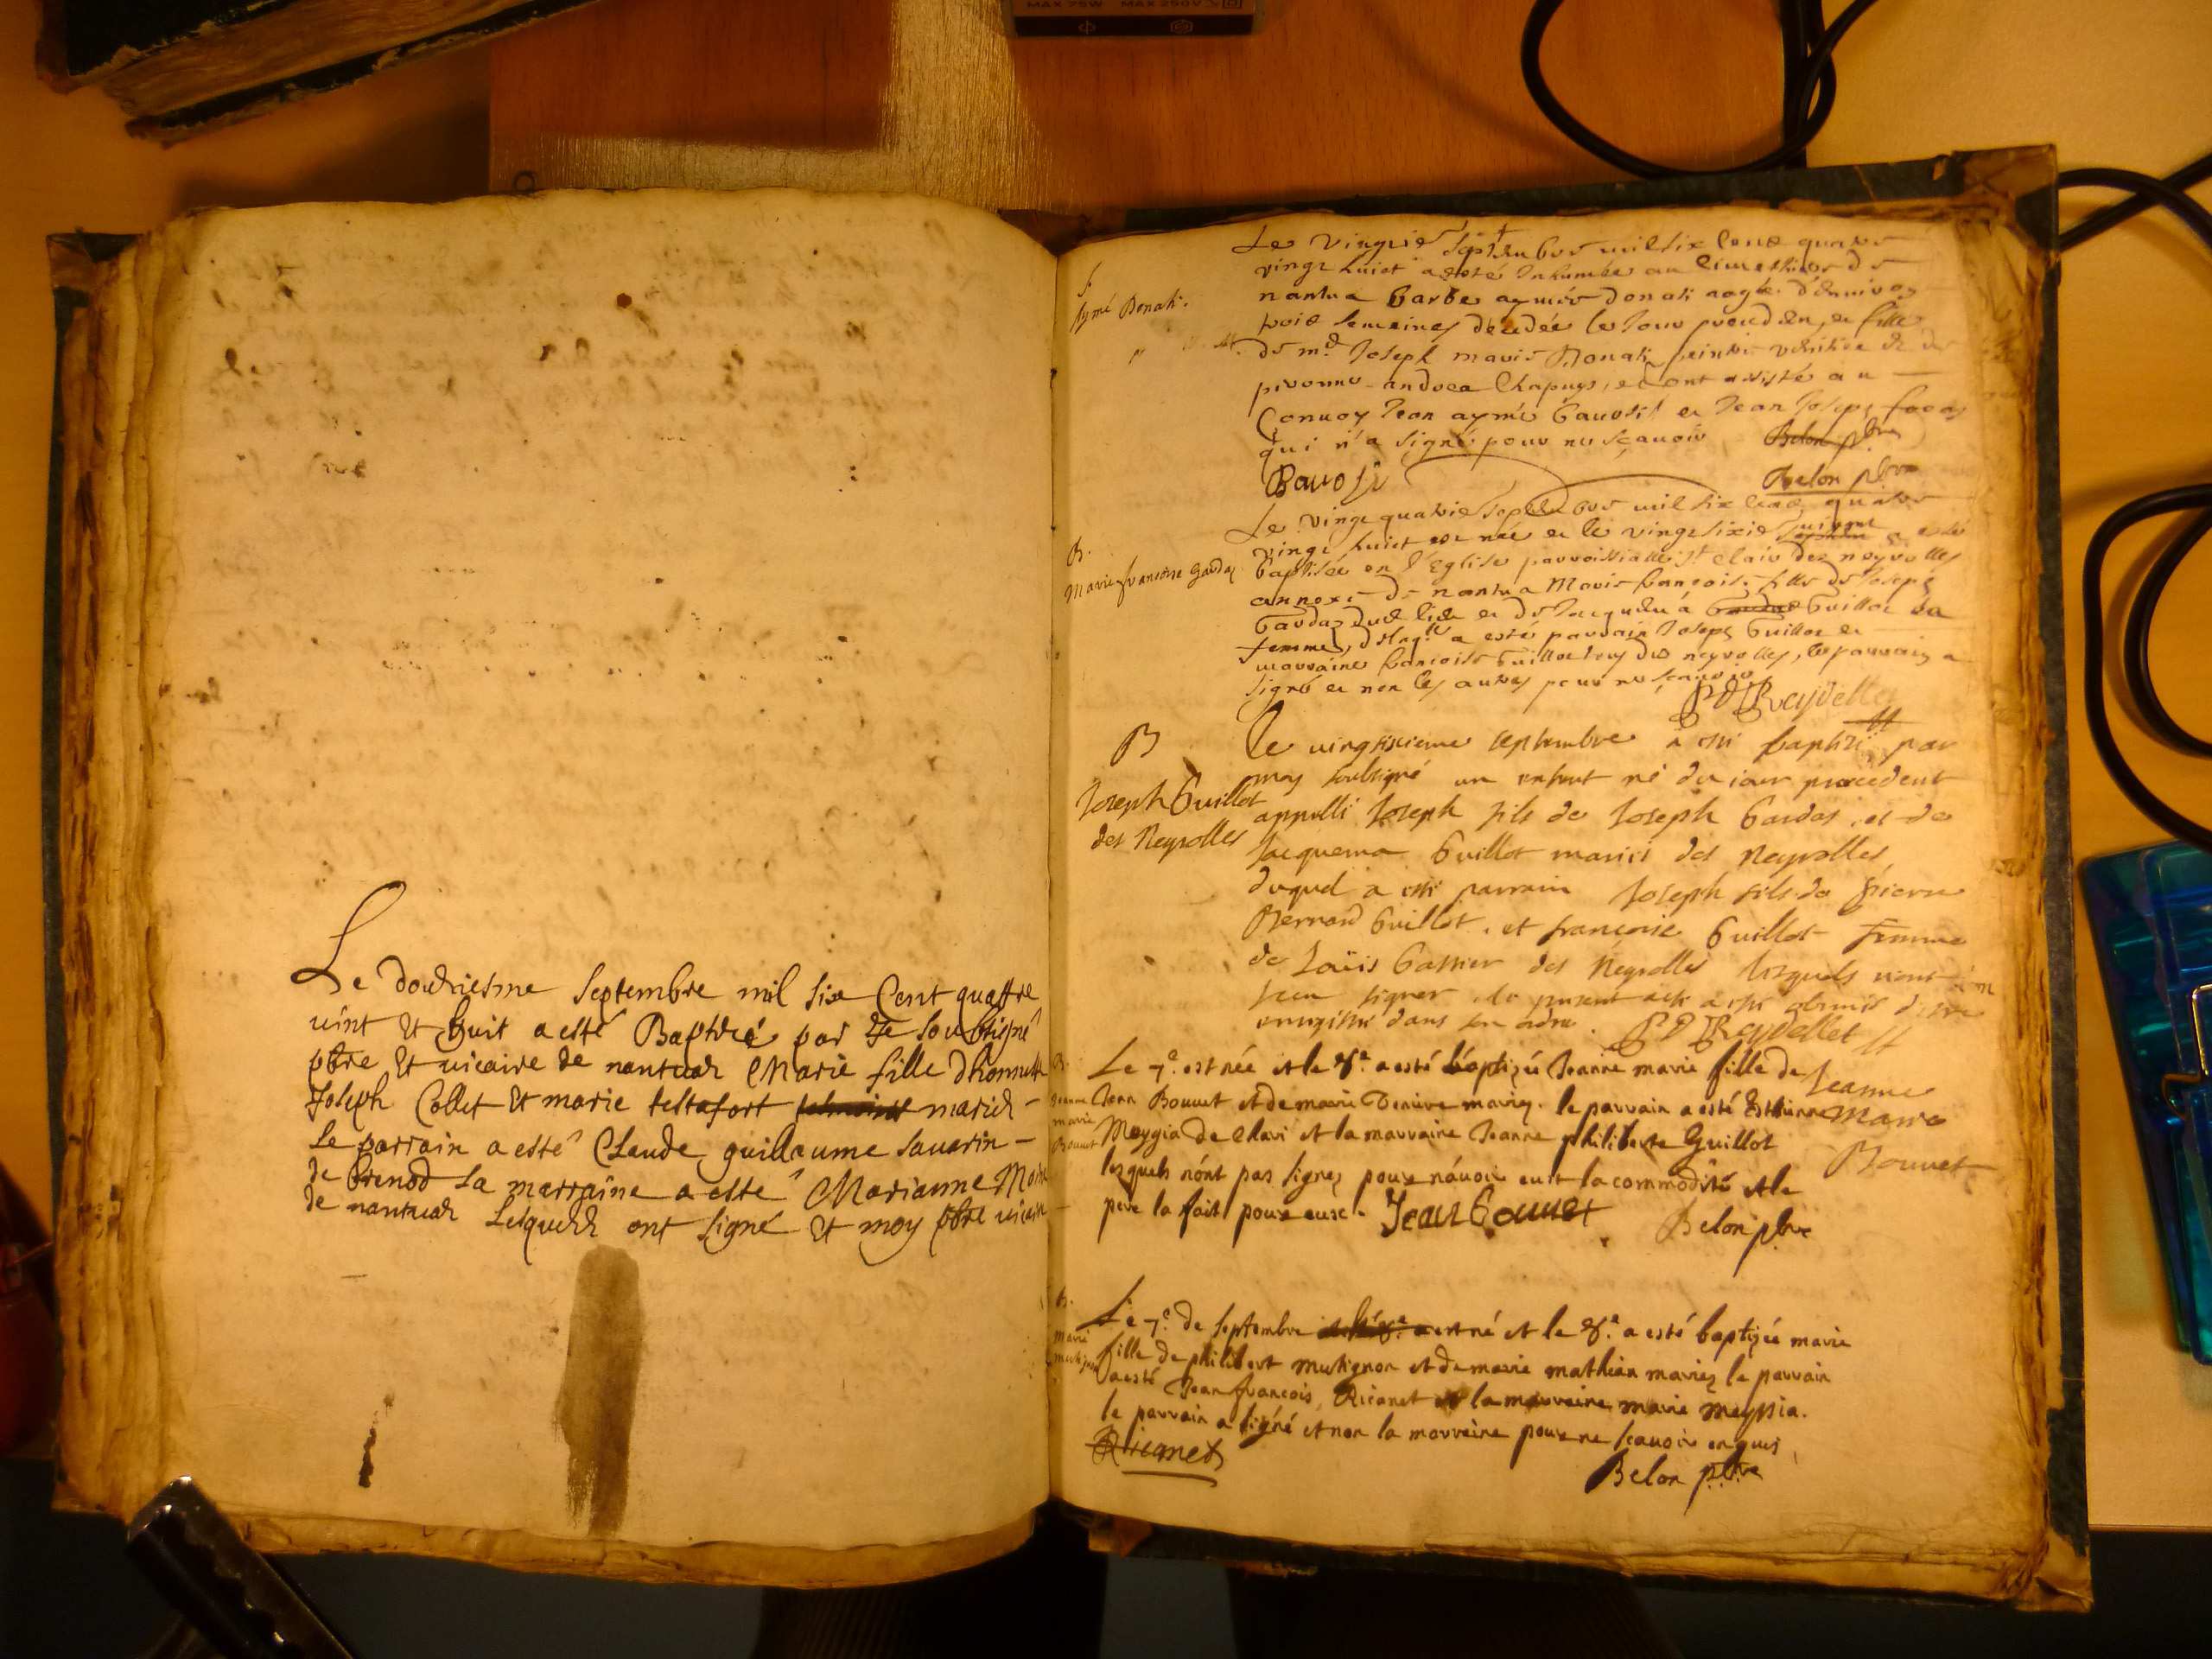 MAX 75W MAX 250V
Le douziesme septembre mil six Cent quattre
vint Et huit a esté Baptizé par Je soubsigné
pbre Et vicaire de nantuaz Marie fille dhonneste
Joseph Collet Et marie testafort mariez
Le parrain a esté Claude guillaume sauarin
de brenod La marraine a esté Marianne
de nantuaz Lesquelz ont signé Et moy pbre vicaire
S.
Aymé Donati.
Le vingtie septembre mil six Cens quatre
vingt huict a esté Inhumée au Cimettiere de
nantua barbe aymée donati aagée d'enuiron
trois semaines décédée le Jour precedent, et fille
de mr. Joseph marie Donati peintre et de
pieronne andrea Chapuys, et ont assisté au
Conuoy Jean aymé et Jean Joseph
qui n'a signé pour ne sçauoir Belon pbre
Belon pbre
B.
Marie françoise Gardaz
Le vingt quatrie septembre mil six Cens quatre
vingt huict est née et le vingt sixie suivant a esté
baptisée en l'Eglise parroissialle st clair des neyrolles
annexe de nantua Marie françoise fille de Joseph
Gardaz dud lieu et de Jacquema Guillot sa
femme, a esté parrain Joseph Guillot et
marraine françoise Guillot tous des neyrolles, le parrain a
signé et non les autres pour ne sçauoir
Reydellet
B
Joseph Guillot
des Neyrolles
Le vingtsixieme septembre a esté baptizé par
moy soubsigné un enfant né du iour precedent
appellé Joseph fils de Joseph Gardas et de
Jacquema Guillot mariés des Neyrolles,
duquel a esté parrain Joseph fils de pierre
Bernard Guillot, et françoise Guillot femme
de Loüis des Neyrolles lesquels n'ont
sceu signer, le present acte a esté obmis d'estre
enregistré dans son ordre. Reydellet
B.
Jeanne
marie
Bouuet
Le 7e. est née et le 8e. a esté baptizée Jeanne marie fille de
Jean Bouuet et de marie mariez. le parrain a esté Esthienne
Meygia de Clavi et la marraine Jeanne philiberte Guillot
lesquels n'ont pas signez pour n'auoir eu la commodité et le
pere la fait pour eux. Jean bouuet Belon pbre
Jeanne
Marie
Bouuet
B.
marie
Le 7e. de septembre est né et le 8e. a esté baptizée marie
fille de philibert mutignon et de marie mathian mariez le parrain
a esté Jean françois Ricanet et la marraine marie meygia.
le parrain a signé et non la marraine pour ne scauoir enquis
Ricanet
Belon pbre